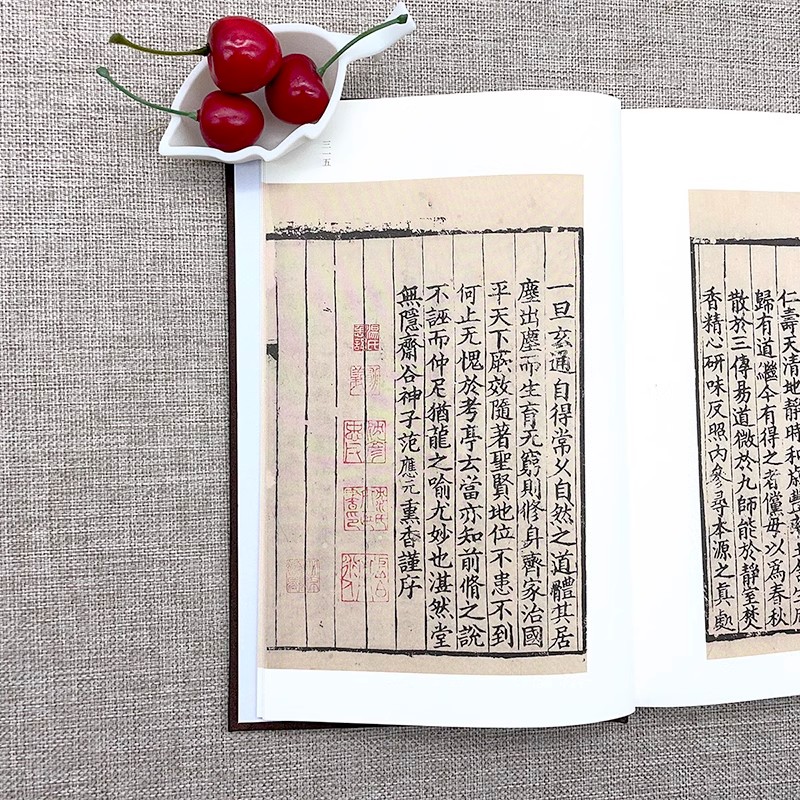 仁壽天清地靜時和歲豐
歸有道繼今有得之者儻毋以爲春秋
散於三傳易道微於九師能於靜室焚
香精心研味反照內參尋本源之真處
一旦玄通自得常久自然之道體其居
塵出塵而生育无窮則修身齊家治國
平天下厥效隨著聖賢地位不患不到
何止无愧於考亭去當亦知前脩之說
不誣而仲尼猶龍之喻尤妙也湛然堂
無隱齋谷神子范應元熏香謹序
三一五